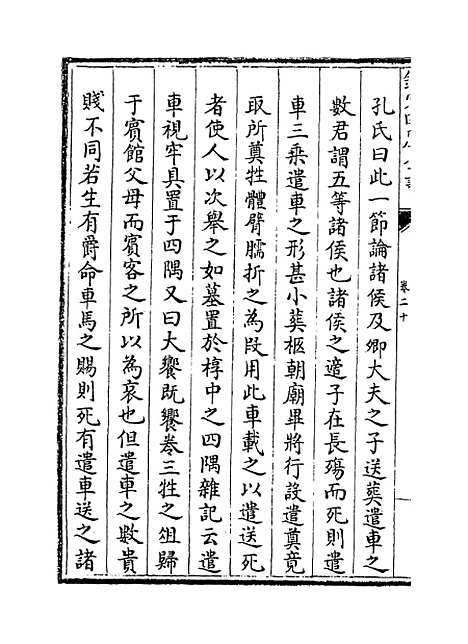 孔氏曰此一節論諸侯及卿大夫之子送葬遣車之
數君謂五等諸侯也諸侯之適子在長殤而死則遣
車三乘遣車之形甚小葬柩朝廟畢將行設遣奠竟
取所奠牲體臂臑折之為段用此車載之以遣送死
者使人以次舉之如墓置於椁中之四隅雜記云遣
車視牢具置于四隅又曰大饗既饗卷三牲之俎歸
于賓館父母而賓客之所以為哀也但遣車之數貴
賤不同若生有爵命車馬之賜則死有遣車送之諸
卷二十